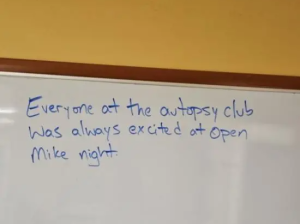 Everyone at the autopsy club
was always excited at Open
Mike night.